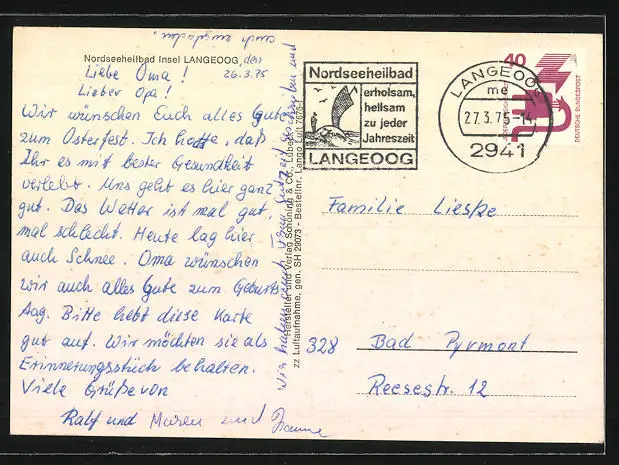 Nordseeheilbad Insel LANGEOOG, den
26.3.75
Liebe Oma!
Lieber Opa!
Wir wünschen Euch alles Gute
zum Osterfest. Ich hoffe, daß
Ihr es mit bester Gesundheit
verlebt. Uns geht es hier ganz
gut. Das Wetter ist mal gut,
mal schlecht. Heute lag hier
auch Schnee. Oma wünschen
wir auch alles Gute zum Geburts-
tag. Bitte hebt diese Karte
gut auf. Wir möchten sie als
Erinnerungsstück behalten.
Viele Grüße von
Ralf und Maren und
Wir haben euch zum und
euch eingeladen.
Hersteller und Verlag Schöning & Co., Lübeck
zz Luftaufnahme, gen. SH 29073 - Bestellnr. Lango Luft 7676
Nordseeheilbad
erholsam,
heilsam
zu jeder
Jahreszeit
LANGEOOG
LANGEOOG
me
27.3.75-14
2941
40
DEUTSCHE BUNDESPOST
Familie Lieske
328 Bad Pyrmont
Reesestr. 12